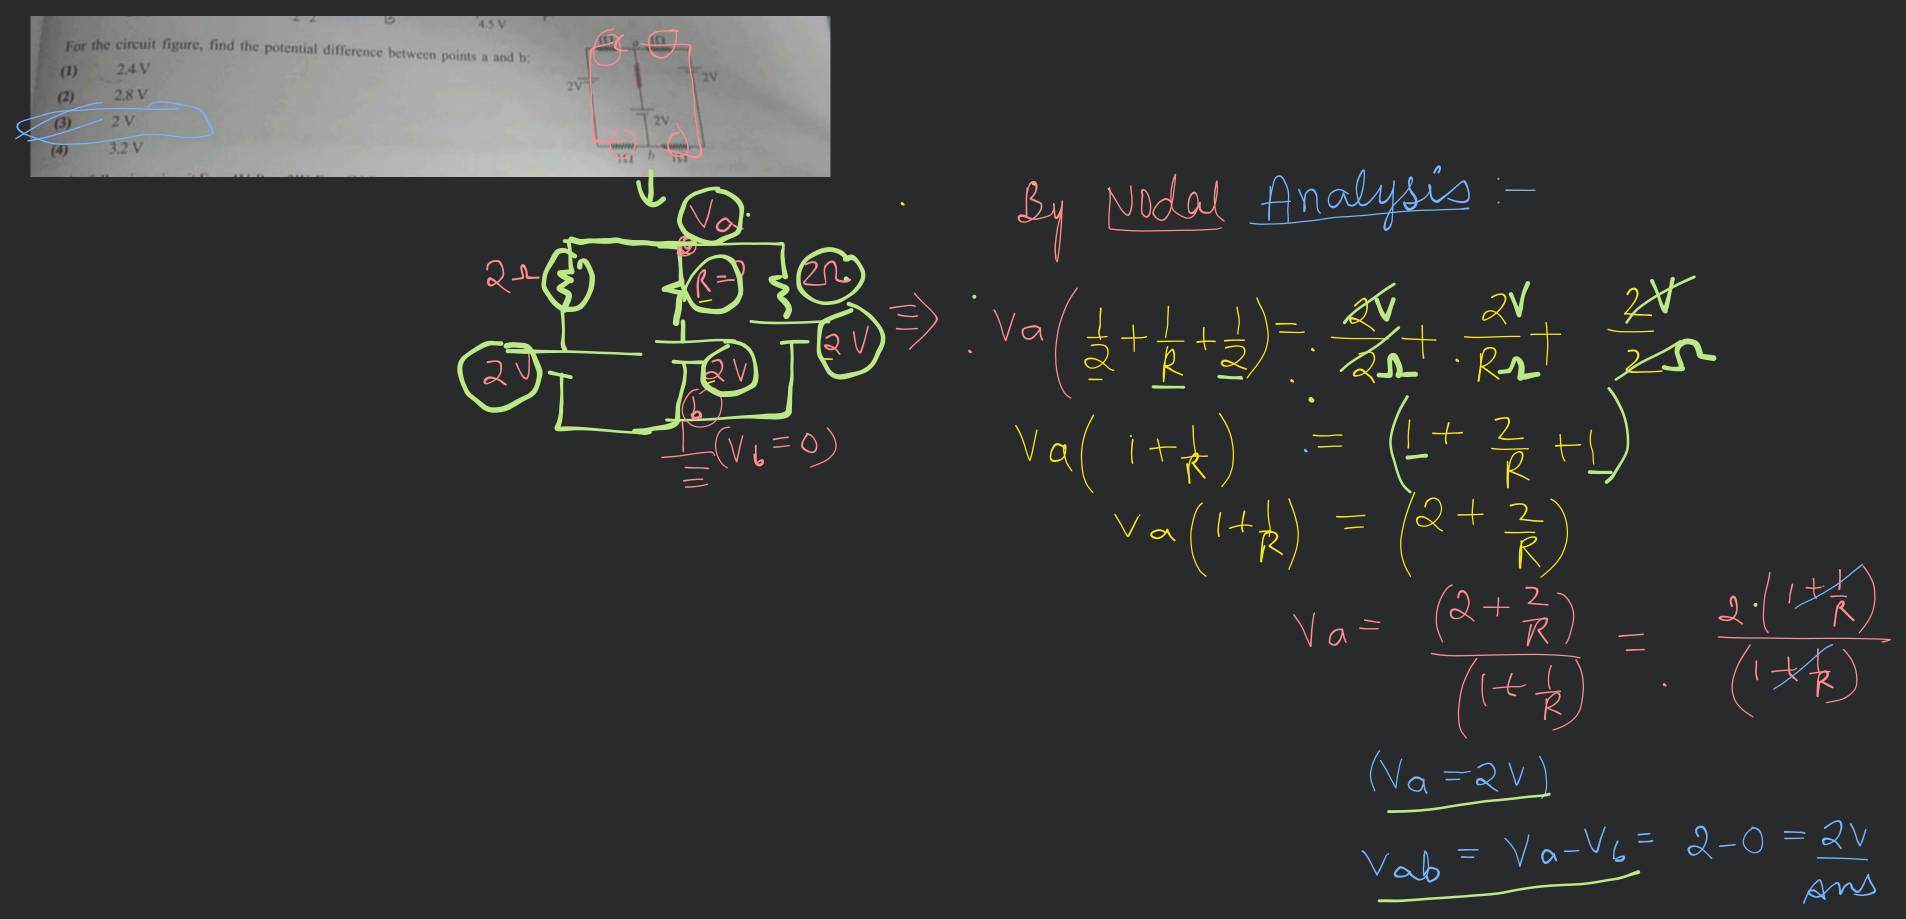 4.5 V
For the circuit figure, find the potential difference between points a and b:
(1) 2.4 V
(2) 2.8 V
(3) 2 V
(4) 3.2 V
1Ω a 1Ω
2V 2V
2V
1Ω b 1Ω
Va
2Ω R=? 2Ω
2V 2V 2V
b
(Vb = 0)
By Nodal Analysis :-
⇒ Va (1/2 + 1/R + 1/2) = 2V/2Ω + 2V/RΩ + 2V/2Ω
Va (1 + 1/R) = (1 + 2/R + 1)
Va (1 + 1/R) = (2 + 2/R)
Va = (2 + 2/R)/(1 + 1/R) = 2·(1 + 1/R)/(1 + 1/R)
(Va = 2V)
Vab = Va - Vb = 2 - 0 = 2V
Ans